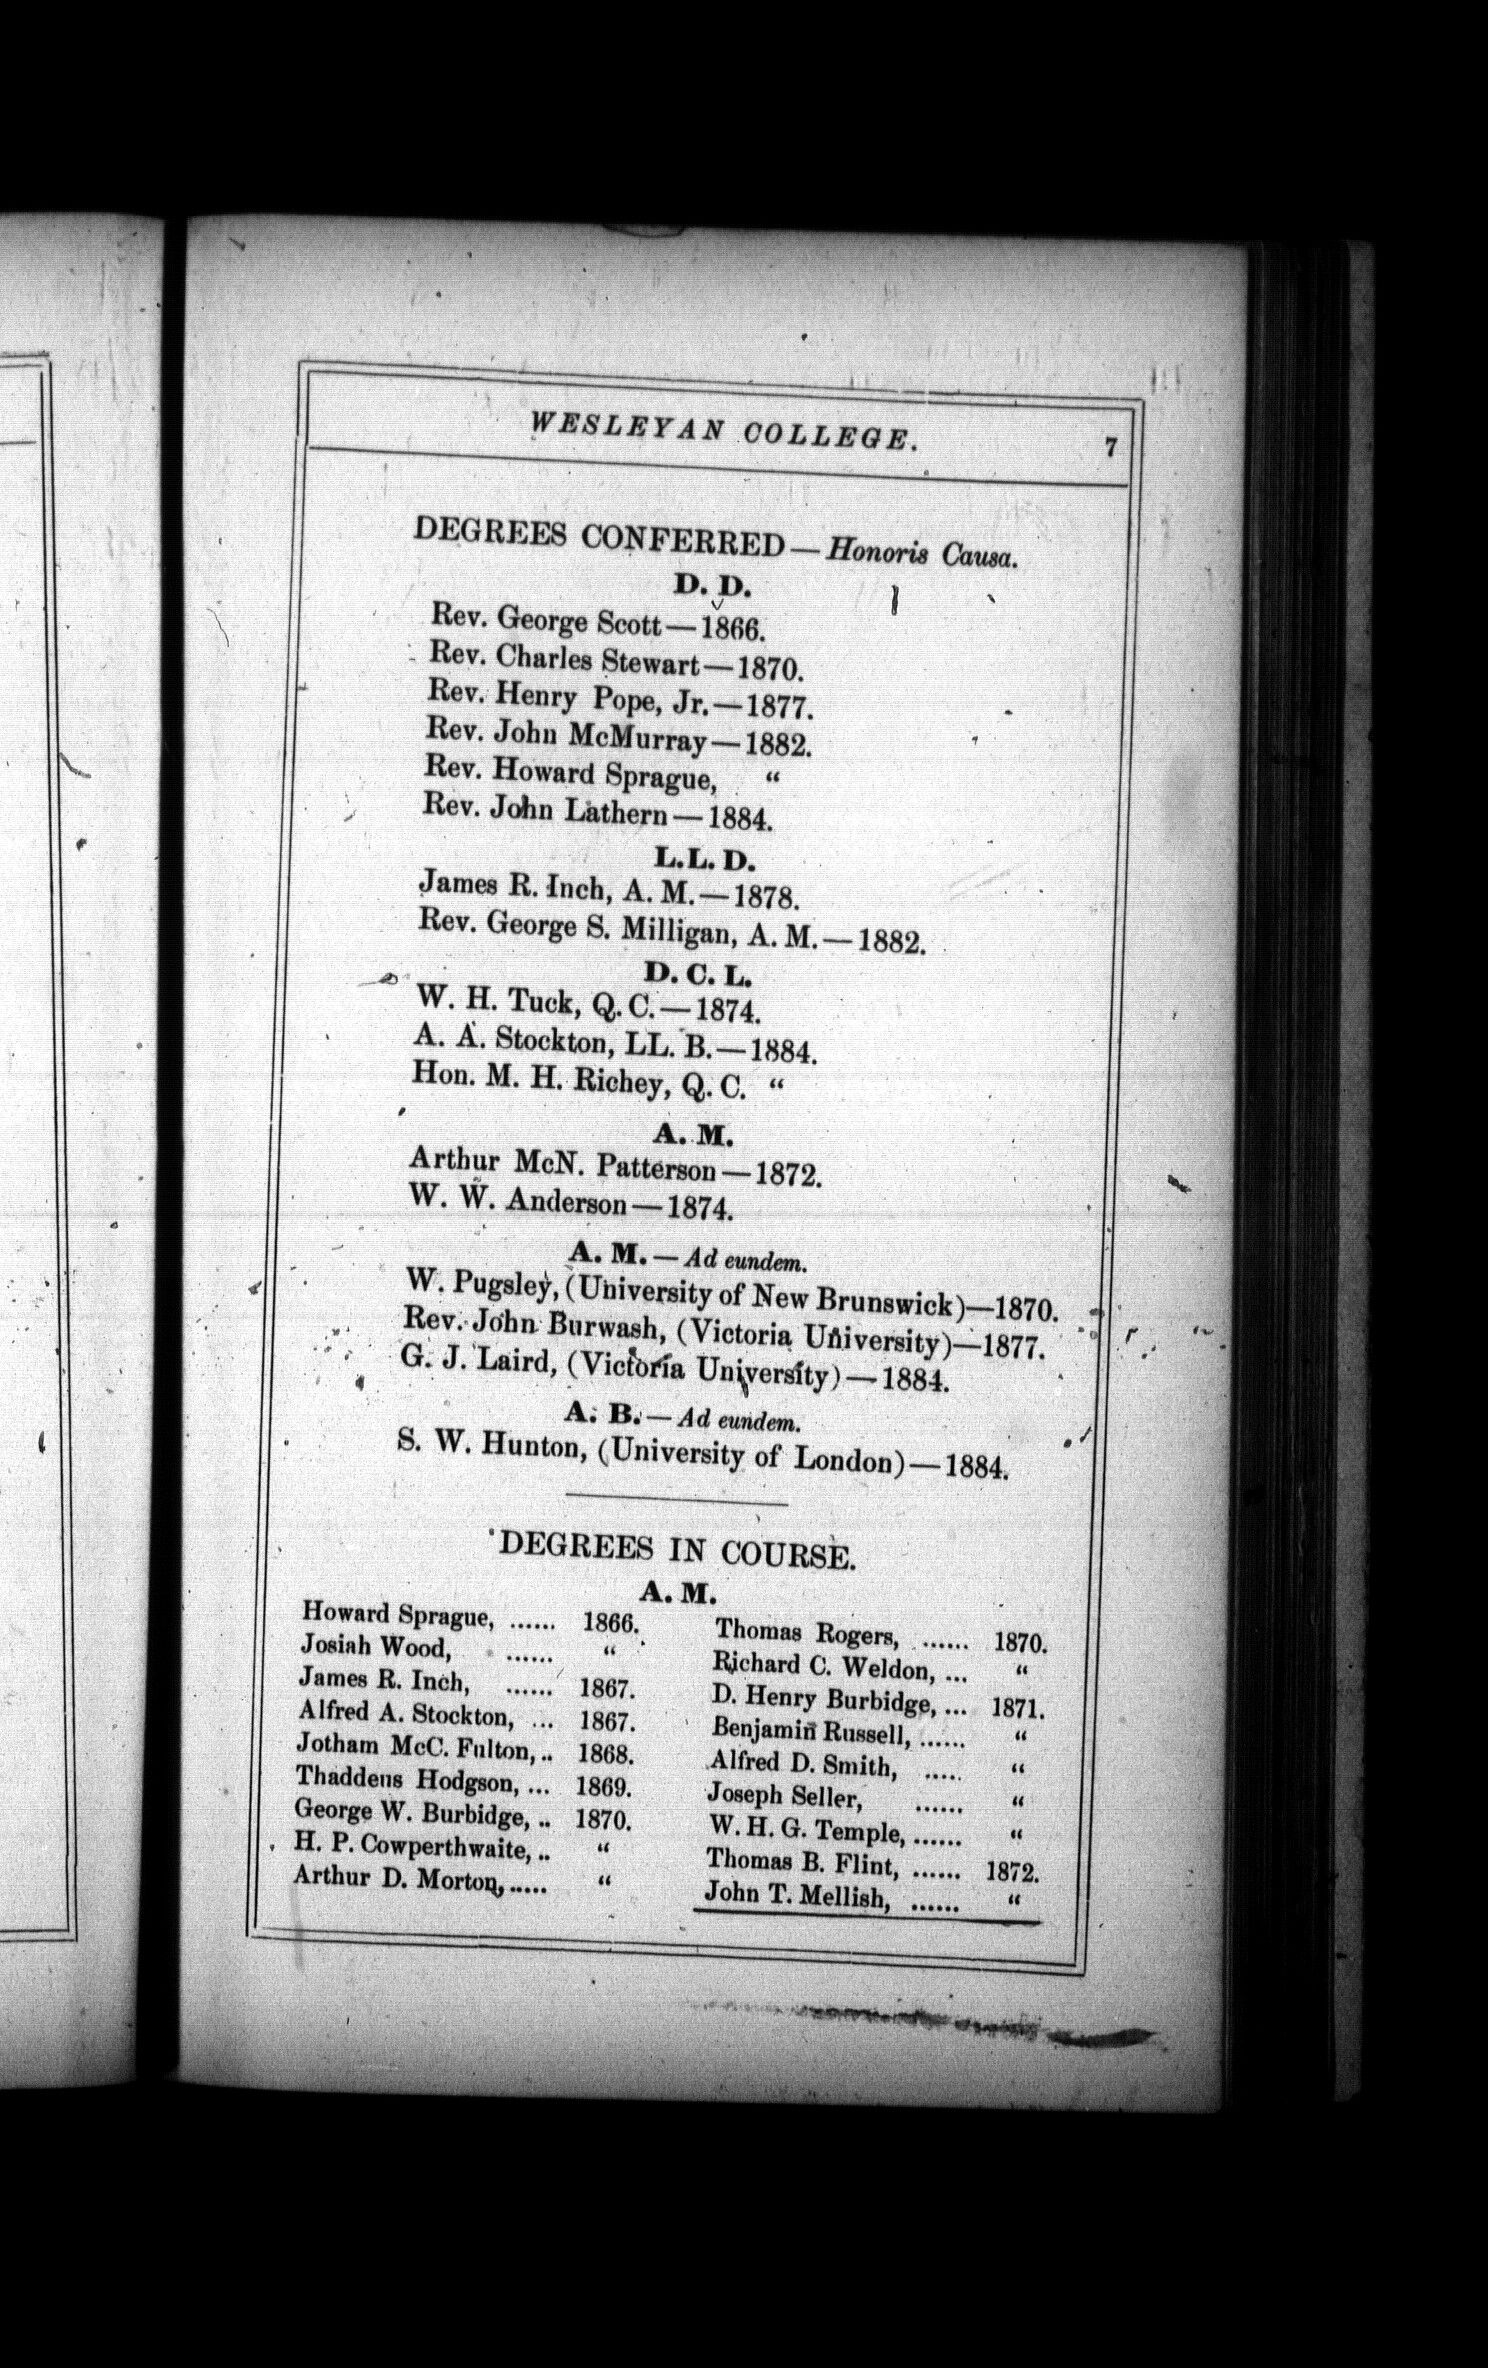 WESLEYAN COLLEGE. 7
DEGREES CONFERRED — Honoris Causa.
D. D.
Rev. George Scott — 1866.
Rev. Charles Stewart — 1870.
Rev. Henry Pope, Jr. — 1877.
Rev. John McMurray — 1882.
Rev. Howard Sprague, “
Rev. John Lathern — 1884.
L. L. D.
James R. Inch, A. M. — 1878.
Rev. George S. Milligan, A. M. — 1882.
D. C. L.
W. H. Tuck, Q. C. — 1874.
A. A. Stockton, LL. B. — 1884.
Hon. M. H. Richey, Q. C. “
A. M.
Arthur McN. Patterson — 1872.
W. W. Anderson — 1874.
A. M. — Ad eundem.
W. Pugsley, (University of New Brunswick)—1870.
Rev. John Burwash, (Victoria University)—1877.
G. J. Laird, (Victoria University) — 1884.
A. B. — Ad eundem.
S. W. Hunton, (University of London) — 1884.
DEGREES IN COURSE.
A. M.
Howard Sprague, ...... 1866.
Josiah Wood, ...... “
James R. Inch, ...... 1867.
Alfred A. Stockton, ... 1867.
Jotham McC. Fulton, .. 1868.
Thaddeus Hodgson, ... 1869.
George W. Burbidge, .. 1870.
H. P. Cowperthwaite, .. “
Arthur D. Morton, ..... “
Thomas Rogers, ...... 1870.
Richard C. Weldon, ... “
D. Henry Burbidge, ... 1871.
Benjamin Russell, ...... “
Alfred D. Smith, ..... “
Joseph Seller, ...... “
W. H. G. Temple, ...... “
Thomas B. Flint, ...... 1872.
John T. Mellish, ...... “